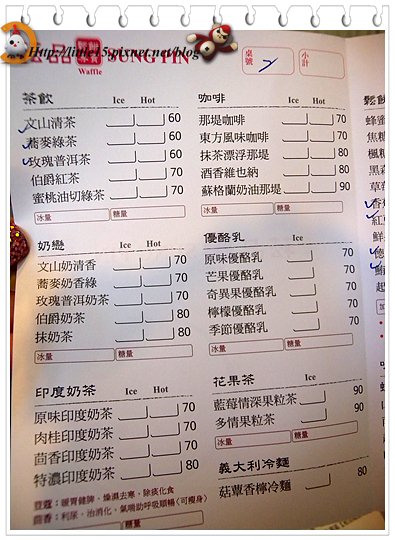 Http://little15.pixnet.net/blog
輕鬆食 SUNG PIN
Waffle
桌號 小計
茶飲 Ice Hot
文山清茶 60
蕎麥綠茶 60
玫瑰普洱茶 70
伯爵紅茶 70
蜜桃油切綠茶 70
冰量 糖量
奶戀 Ice Hot
文山奶清香 70
蕎麥奶香綠 70
玫瑰普洱奶茶 70
伯爵奶茶 80
抹奶茶 80
冰量 糖量
印度奶茶 Ice Hot
原味印度奶茶 70
肉桂印度奶茶 70
茴香印度奶茶 70
特濃印度奶茶 80
荳蔻：暖胃健脾、燥濕去寒、除痰化食
茴香：利尿、治消化、氣喘助呼吸順暢(可瘦身)
冰量 糖量
咖啡 Ice Hot
那堤咖啡 70
東方風味咖啡 70
抹茶漂浮那堤 80
酒香維也納 80
蘇格蘭奶油那堤 90
冰量 糖量
優酪乳 Ice
原味優酪乳 70
芒果優酪乳 70
奇異果優酪乳 70
檸檬優酪乳 70
季節優酪乳 70
冰量 糖量
花果茶 Ice
藍莓情深果粒茶 90
多情果粒茶 90
冰量 糖量
義大利冷麵
菇蕈香檸冷麵 80
鬆餅
蜂蜜
焦糖
楓糖
黑森
草莓